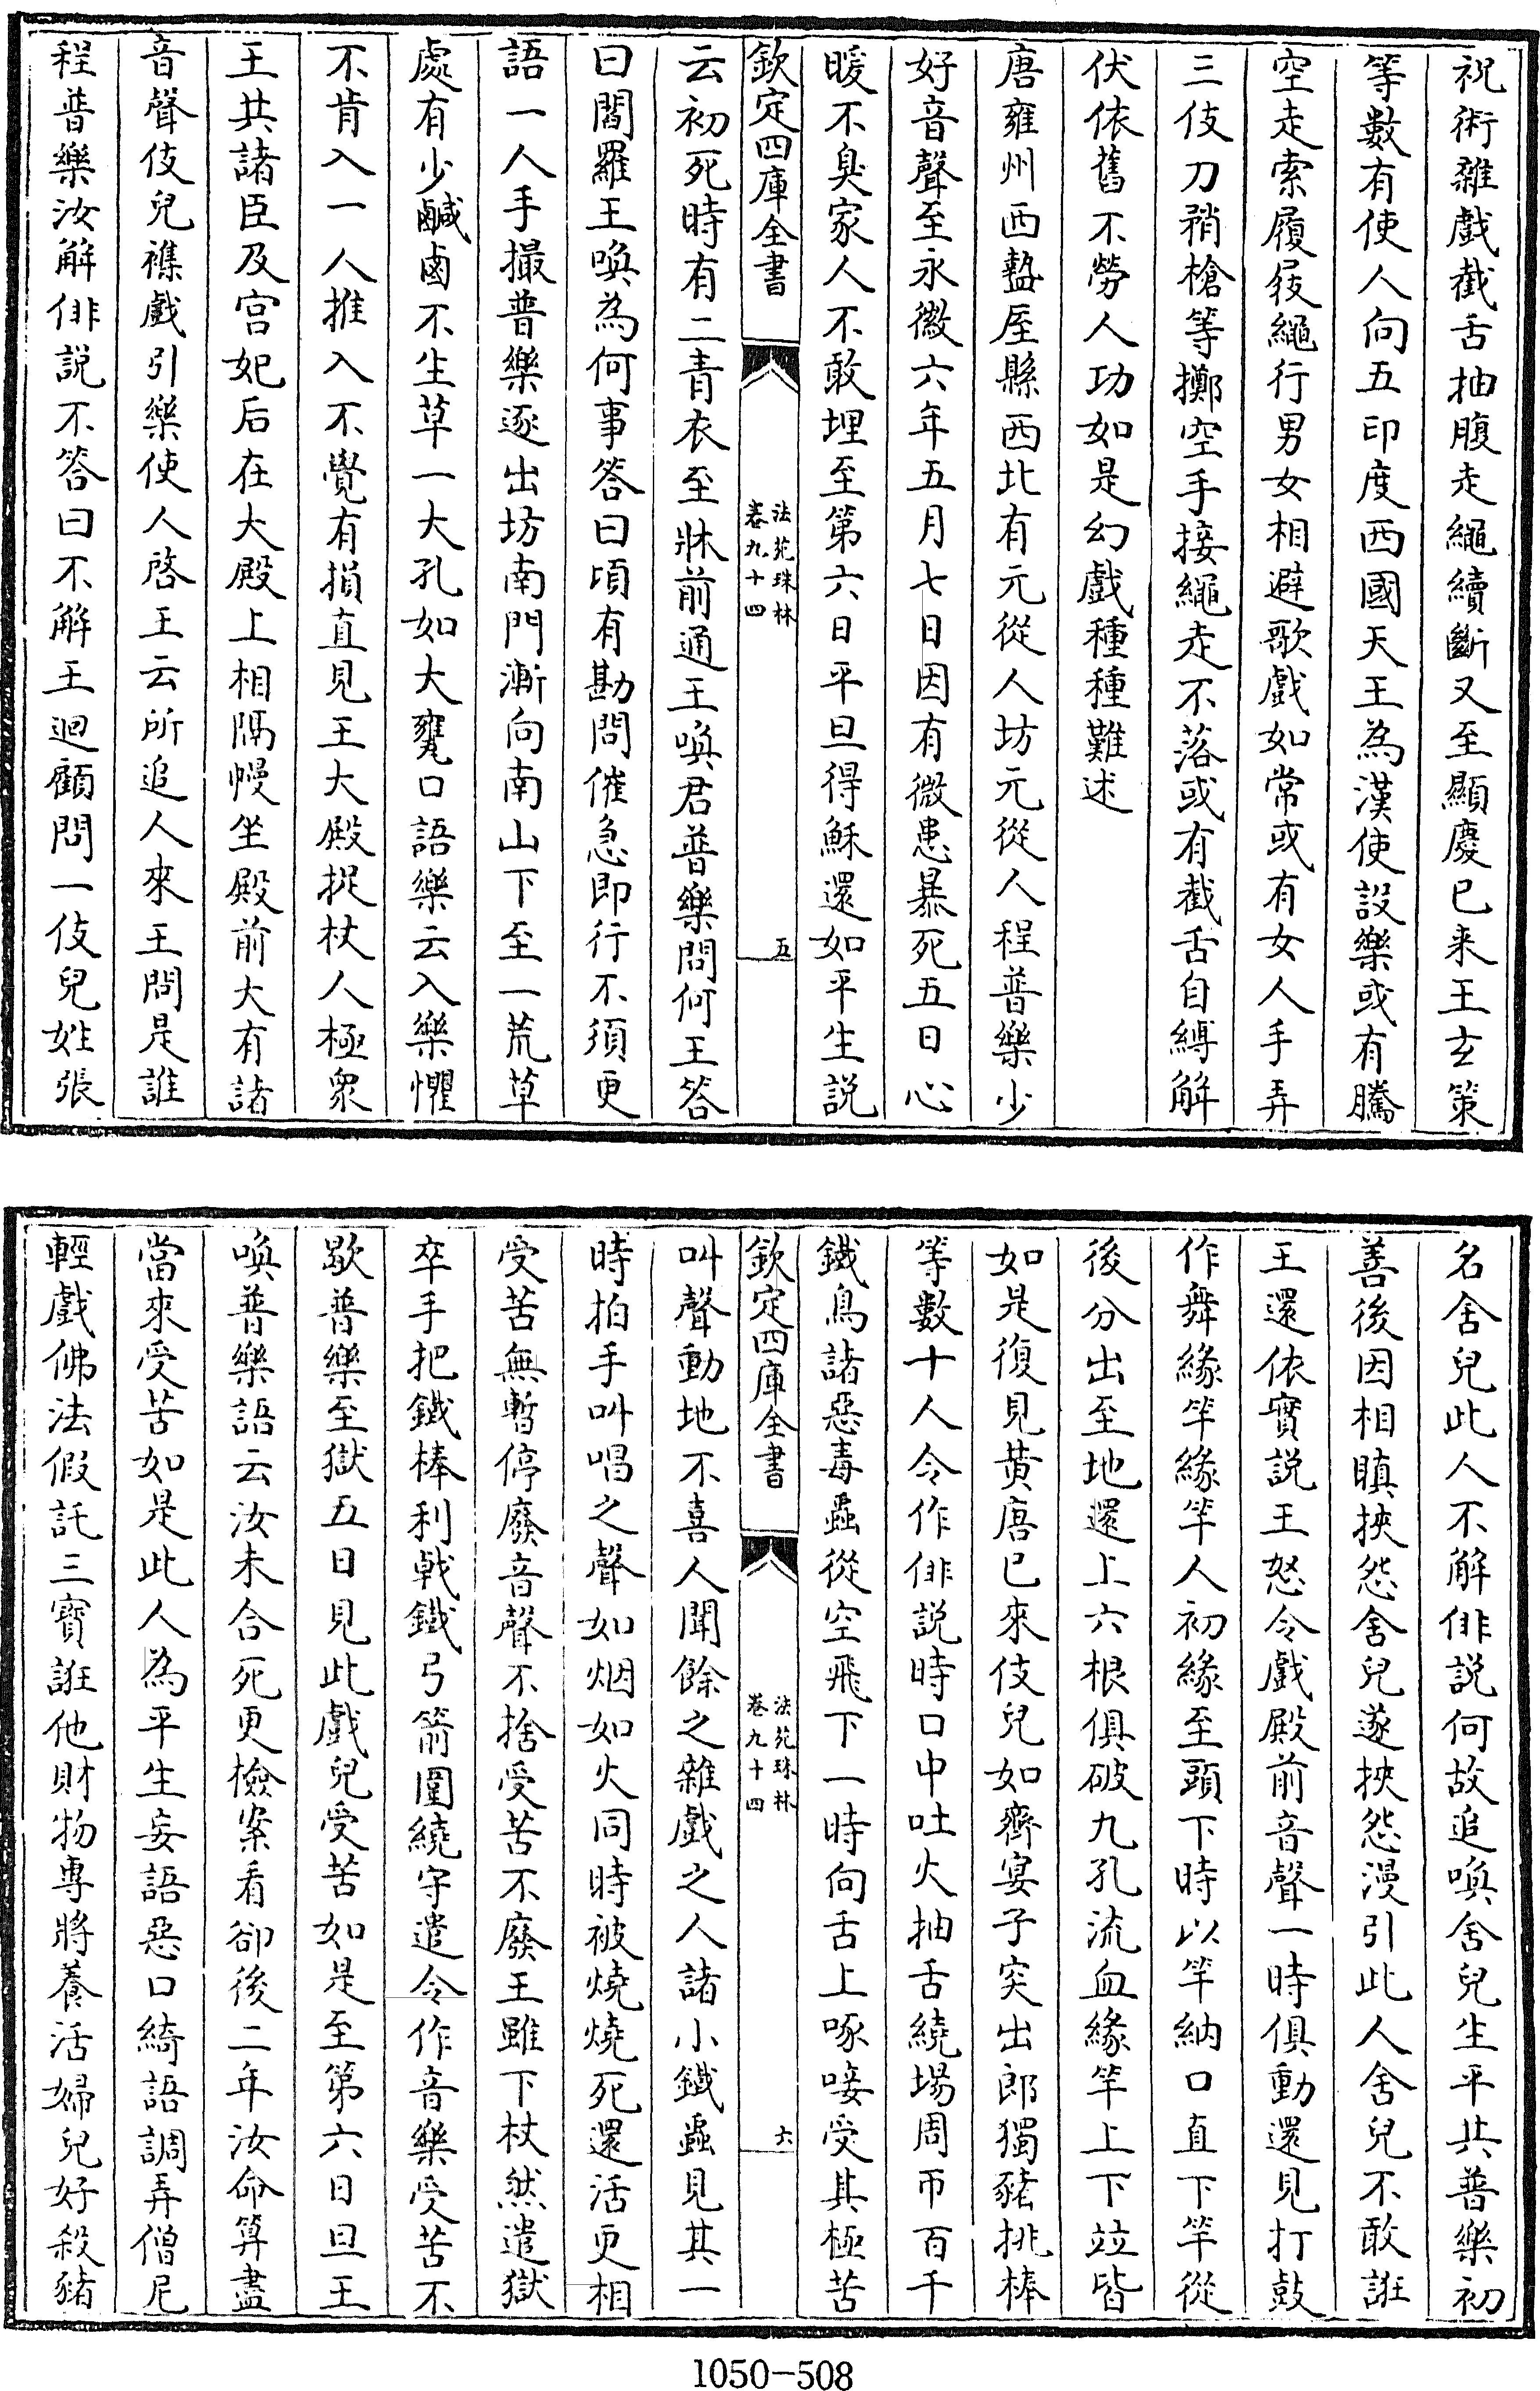 祝術雜戲截舌抽腹走繩續斷又至顯慶已来王𤣥策
等數有使人向五印度西國天王為漢使設樂或有騰
空走索履屐繩行男女相避歌戲如常或有女人手弄
三伎刀矟槍等擲空手接繩走不落或有截舌自縛解
伏依舊不勞人功如是幻戲種種難述
唐雍州西盩厔縣西北有元從人坊元從人程普樂少
好音聲至永徽六年五月七日因有微患暴死五日心
暖不臭家人不敢埋至第六日平旦得穌還如平生説
欽定四庫全書
法苑珠林
卷九十四
五
云初死時有二青衣至牀前通王喚君普樂問何王答
曰閻羅王喚為何事答曰頃有勘問催急即行不須更
語一人手撮普樂逐出坊南門漸向南山下至一荒草
處有少鹹鹵不生草一大孔如大甕口語樂云入樂懼
不肯入一人推入不覺有損直見王大殿捉杖人極衆
王共諸臣及宫妃后在大殿上相隔幔坐殿前大有諸
音聲伎兒襍戲引樂使人啓王云所追人來王問是誰
程普樂汝解俳説不答曰不解王迴顧問一伎兒姓張
名舍兒此人不解俳説何故追喚舍兒生平共普樂初
善後因相瞋挾怨舍兒遂挾怨漫引此人舍兒不敢誑
王還依實説王怒令戲殿前音聲一時俱動還見打鼓
作舞緣竿緣竿人初緣至頭下時以竿納口直下竿從
後分出至地還上六根俱破九孔流血緣竿上下竝皆
如是復見黄唐已來伎兒如齊宴子突出郎獨豬挑棒
等數十人令作俳説時口中吐火抽舌繞場周帀百千
鐵鳥諸惡毒蟲從空飛下一時向舌上啄唼受其極苦
欽定四庫全書
法苑珠林
卷九十四
六
叫聲動地不喜人聞餘之雜戲之人諸小鐵蟲見其一
時拍手叫唱之聲如烟如火同時被燒燒死還活更相
受苦無暫停廢音聲不捨受苦不廢王雖下杖然遣獄
卒手把鐵棒利戟鐵弓箭圍繞守遣令作音樂受苦不
歇普樂至獄五日見此戲兒受苦如是至第六日旦王
喚普樂語云汝未合死更檢案看卻後二年汝命算盡
當來受苦如是此人為平生妄語惡口綺語調弄僧尼
輕戲佛法假託三寶誑他財物專將養活婦兒好殺豬
1050-508